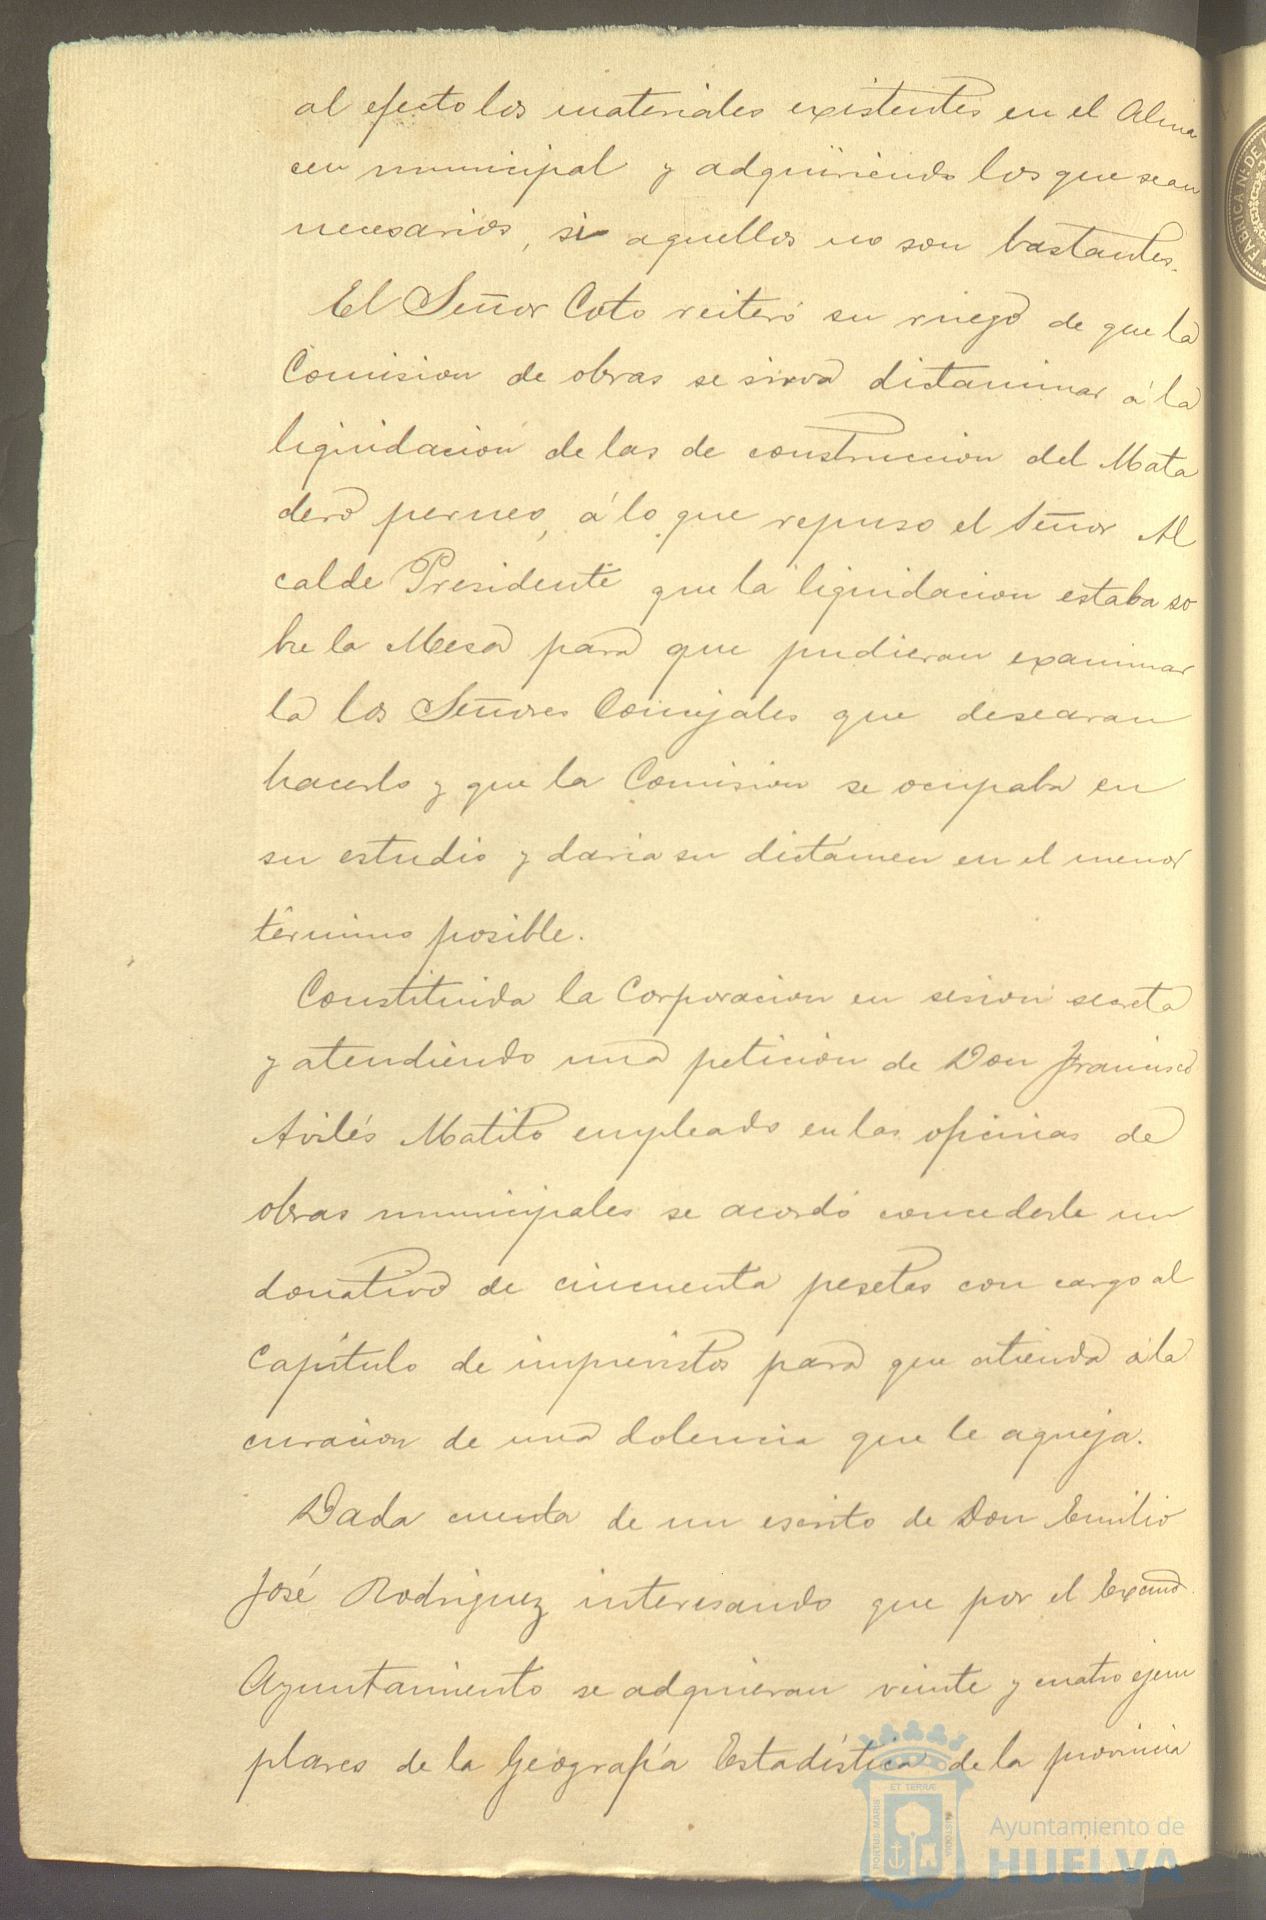 al efecto los materiales existentes en el Alma
cen municipal y adquiriendo los que sean
necesarios, si aquellos no son bastantes.
El Señor Coto reiteró su ruego de que la
Comision de obras se sirva dictaminar á la
liquidación de las de construccion del Mata
dero perneo, á lo que repuso el Señor Al
calde Presidente que la liquidacion estaba so
bre la Mesa para que pudieran examinar
la los Señores Concejales que desearan
hacerlo y que la Comision se ocupaba en
su estudio y daria su dictámen en el menor
término posible.
Constituida la Corporacion en sesion secreta
y atendiendo una petición de Don Francisco
Avilés Matito empleado en las oficinas de
obras municipales se acordó concederle un
donativo de cincuenta pesetas con cargo al
Capítulo de imprevistos para que atienda á la
curacion de una dolencia que le aqueja.
Dada cuenta de un escrito de Don Emilio
José Rodriguez interesando que por el Excmo.
Ayuntamiento se adquieran veinte y cuatro ejem
plares de la Geografía Estadística de la provincia
FABRICA N. DE
PORTUS MARIS
ET TERRÆ
CUSTODIA
Ayuntamiento de
HUELVA